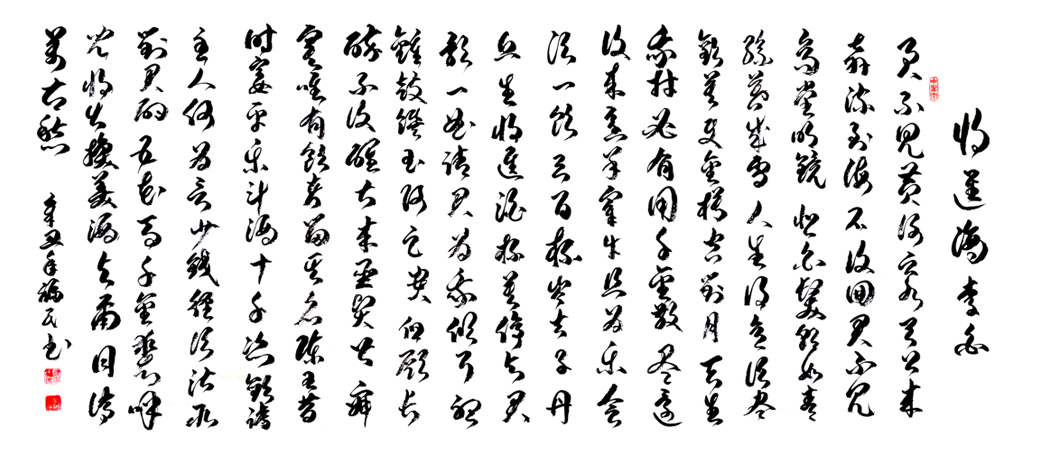 将進酒 李白
君不見黄河之水天上来
奔流到海不復回君不見
高堂明鏡悲白髮朝如青
絲暮成雪人生得意須盡
歡莫使金樽空對月天生
我材必有用千金散盡還
復来烹羊宰牛且為樂會
須一飲三百杯岑夫子丹
丘生將進酒杯莫停與君
歌一曲請君為我傾耳聽
鐘鼓饌玉何足貴但願長
醉不復醒古来聖賢皆寂
寞唯有飲者留其名陳王昔
時宴平樂斗酒十千恣歡謔
主人何為言少錢徑須沽取
對君酌五花馬千金裘呼
兒將出換美酒與爾同消
萬古愁
辛丑年福民书